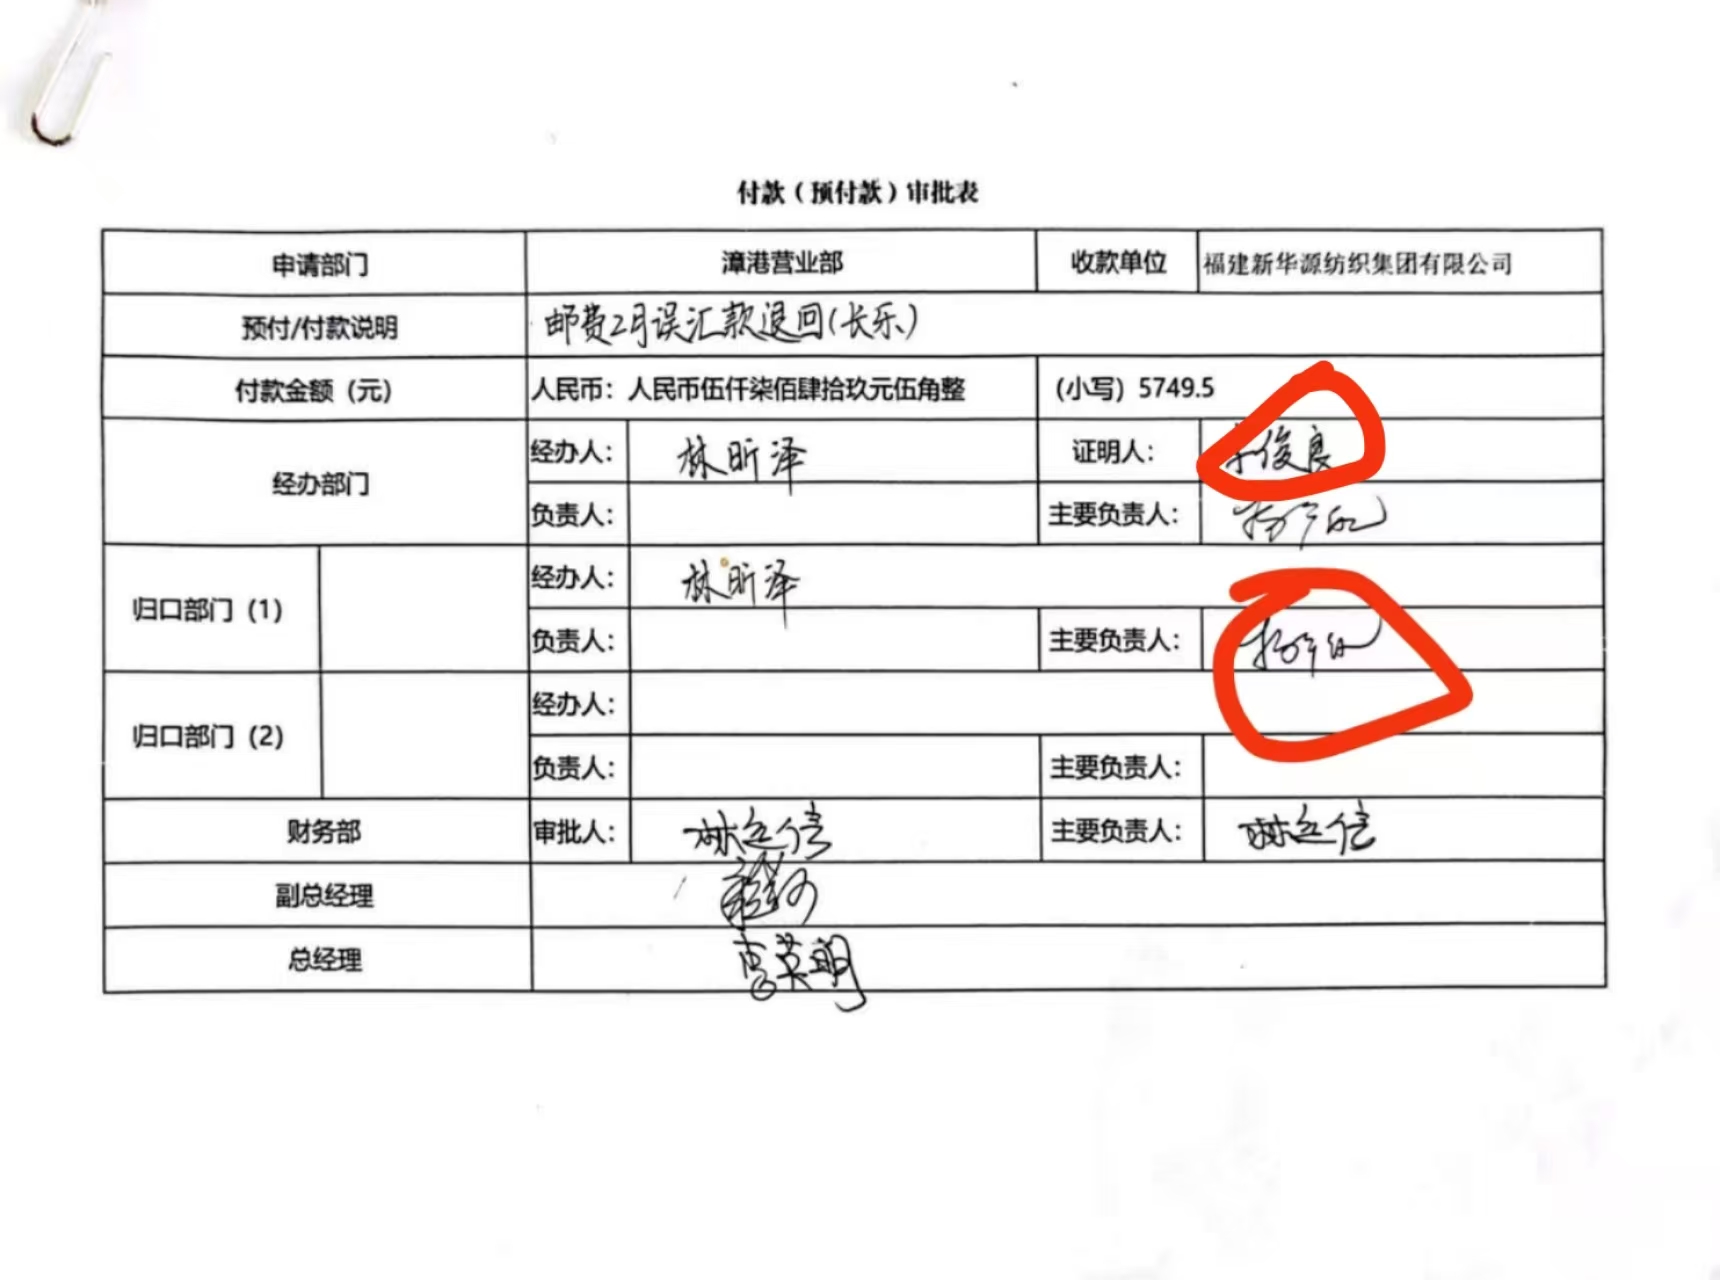 付款（预付款）审批表
申请部门 漳港营业部 收款单位 福建新华源纺织集团有限公司
预付/付款说明 邮费2月误汇款退回(长乐)
付款金额（元） 人民币：人民币伍仟柒佰肆拾玖元伍角整 （小写）5749.5
经办部门 经办人： 林昕泽 证明人： 俊良
负责人： 主要负责人：
归口部门（1） 经办人： 林昕泽
负责人： 主要负责人：
归口部门（2） 经办人：
负责人： 主要负责人：
财务部 审批人： 林 信 主要负责人： 林 信
副总经理
总经理 李英明